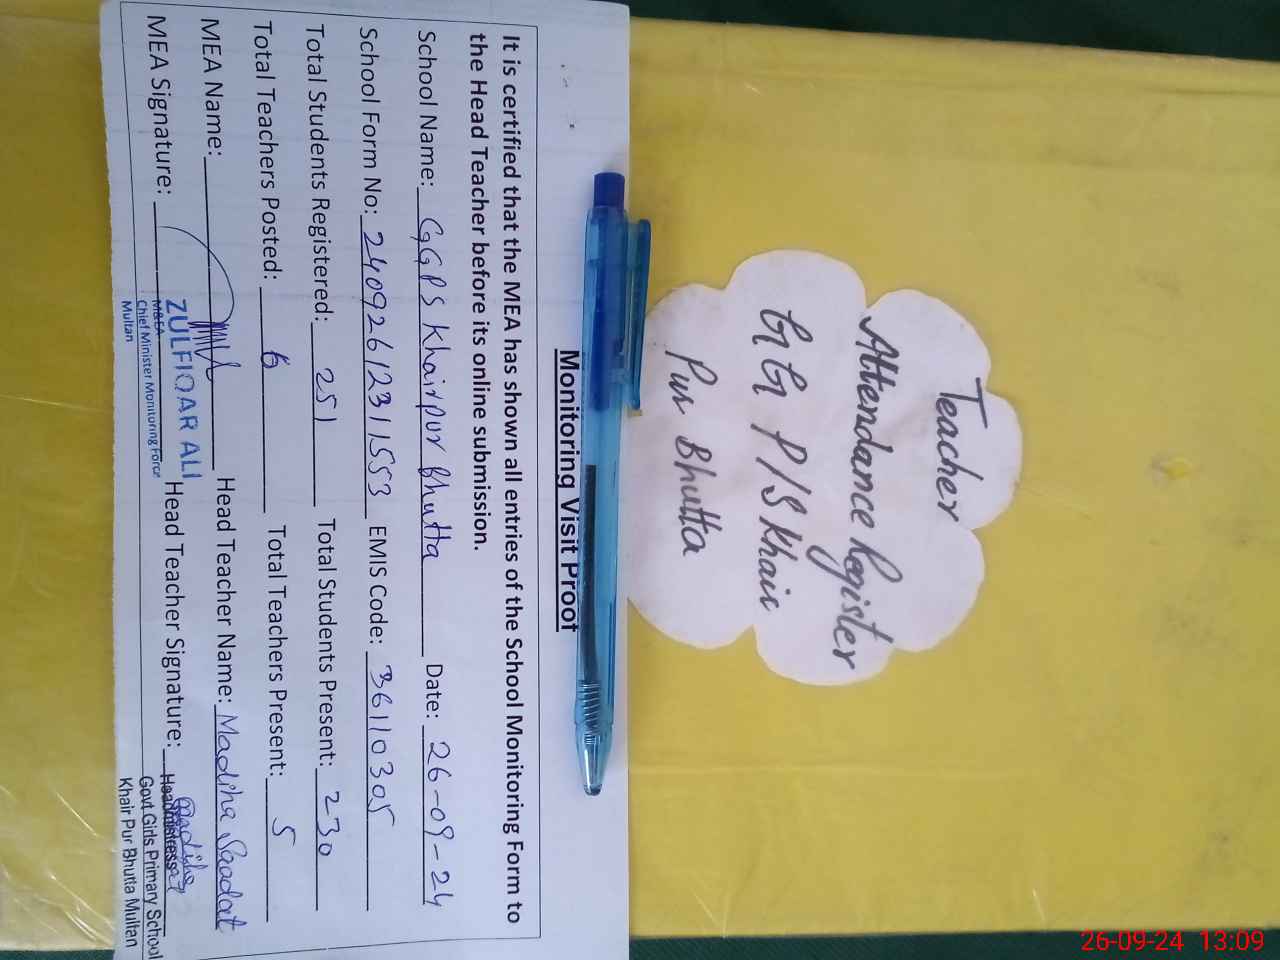 Teacher
Attendance Register
GG P/S Khair
Pur Bhutta
Monitoring Visit Proof
It is certified that the MEA has shown all entries of the School Monitoring Form to
the Head Teacher before its online submission.
School Name: GGPS Khairpur Bhutta Date: 26-09-24
School Form No: 24092612311553 EMIS Code: 36110305
Total Students Registered: 251 Total Students Present: 230
Total Teachers Posted: 6 Total Teachers Present: 5
MEA Name: Head Teacher Name: Madiha Saadat
MEA Signature: Head Teacher Signature: Madiha
ZULFIQAR ALI
M&EA
Chief Minister Monitoring Force
Multan
Headmistress
Govt. Girls Primary School
Khair Pur Bhutta Multan
26-09-24 13:09